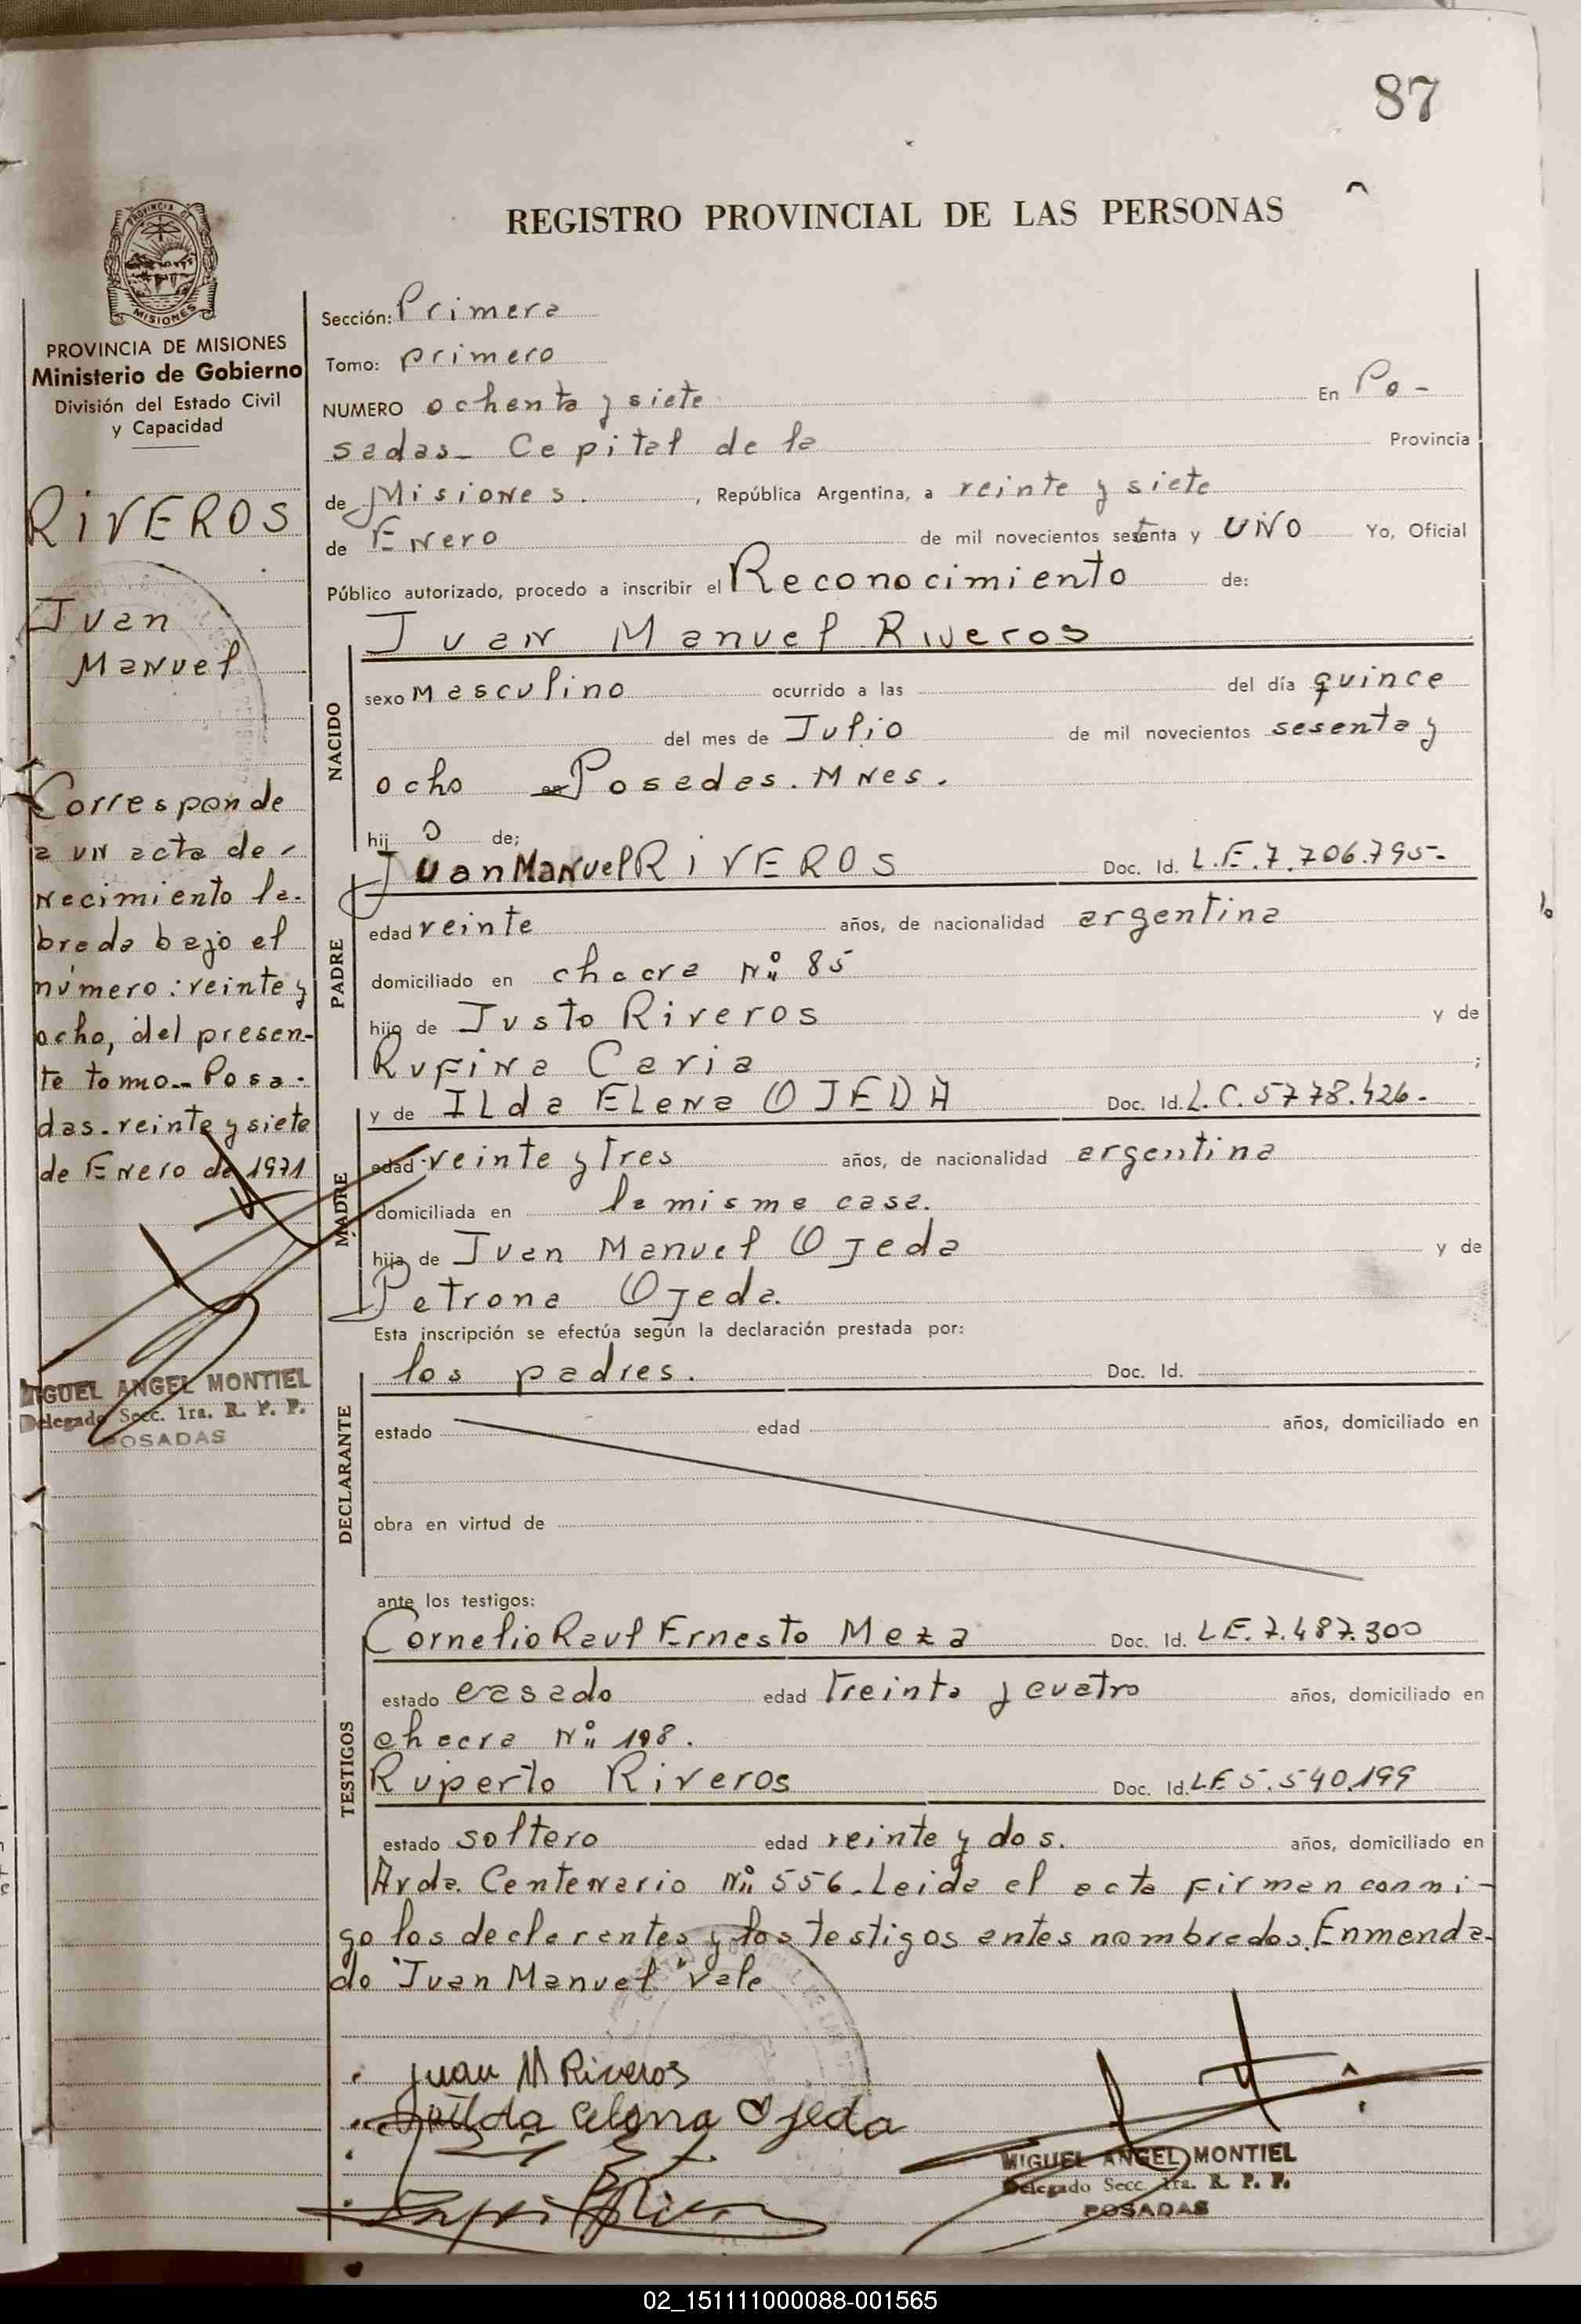 87
REGISTRO PROVINCIAL DE LAS PERSONAS
PROVINCIA DE MISIONES
Ministerio de Gobierno
División del Estado Civil
y Capacidad
RIVEROS
Juan
Manuel
Corresponde
a un acta de
necimiento la-
brada bajo el
número: veinte y
ocho, del presen-
te tomo.- Posa-
das. veinte y siete
de Enero de 1971
MIGUEL ANGEL MONTIEL
Delegado Secc. 1ra. R. P. P.
POSADAS
Sección: Primera
Tomo: primero
NUMERO ochenta y siete En Po-
sadas- Capital de la Provincia
de Misiones. , República Argentina, a veinte y siete
de Enero de mil novecientos setenta y UNO Yo, Oficial
Público autorizado, procedo a inscribir el Reconocimiento de:
NACIDO
Juan Manuel Riveros
sexo Masculino ocurrido a las del día quince
del mes de Julio de mil novecientos sesenta y
ocho en Posadas. Mnes.
hijo de;
PADRE
Juan Manuel RIVEROS Doc. Id. L.E.7.706.795-
edad veinte años, de nacionalidad argentina
domiciliado en chacra Nº 85
hijo de Justo Riveros y de
Rufina Caria ;
MADRE
y de Ilda Elena OJEDA Doc. Id. L.C.5778.426-
edad veinte y tres años, de nacionalidad argentina
domiciliada en la misma casa.
hija de Juan Manuel Ojeda y de
Petrona Ojeda.
Esta inscripción se efectúa según la declaración prestada por:
DECLARANTE
los padres. Doc. Id.
estado edad años, domiciliado en
obra en virtud de
ante los testigos:
TESTIGOS
Cornelio Raul Ernesto Meza Doc. Id. L.E.7.487.300
estado casado edad treinta y cuatro años, domiciliado en
chacra Nº 198.
Ruperto Riveros Doc. Id. LE 5.540.199
estado soltero edad veinte y dos. años, domiciliado en
Avda. Centenario Nº 556. Leida el acta firman conmi-
go los declarantes y los testigos antes nombrados. Enmenda-
do "Juan Manuel" vale
Juan M Riveros
Ilda Elena Ojeda
MIGUEL ANGEL MONTIEL
Delegado Secc. 1ra. R. P. P.
POSADAS
02_151111000088-001565